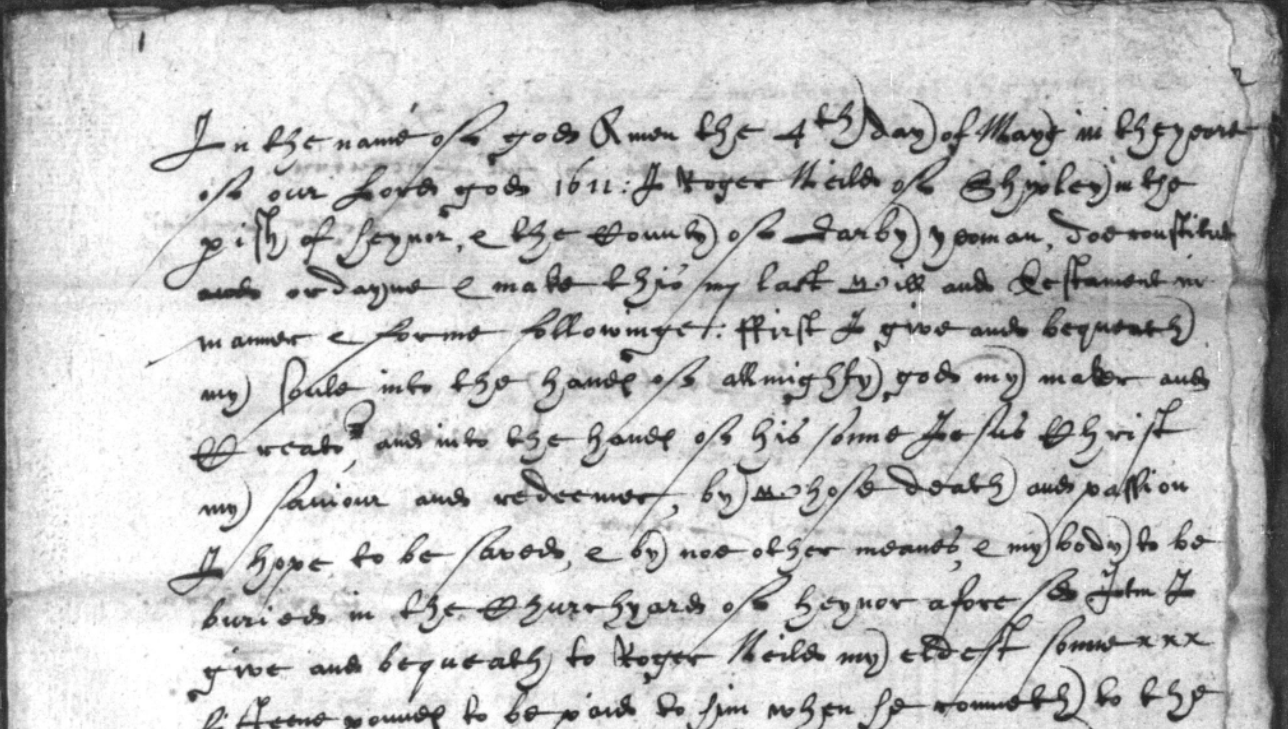 1
In the name of god Amen the 4th day of Maye in the yeare
of our Lord god 1611: I Roger Neild of Shipley in the
pish of heynor, & the County of Darby yeoman, doe constitute
and ordayne & make this my last will and Testament in
manner & forme followinge: ffirst I give and bequeath
my soule into the hands of allmighty god my maker and
Creator, and into the hands of his sonne Jesus Christ
my saviour and redeemer, by whose death and passion
I hope to be saved, & by noe other meanes, & my body to be
buried in the Churchyard of heynor afore sd Itm I
give and bequeath to Roger Neild my eldest sonne xxx
fifteene pounds to be paid to him when he commeth to the